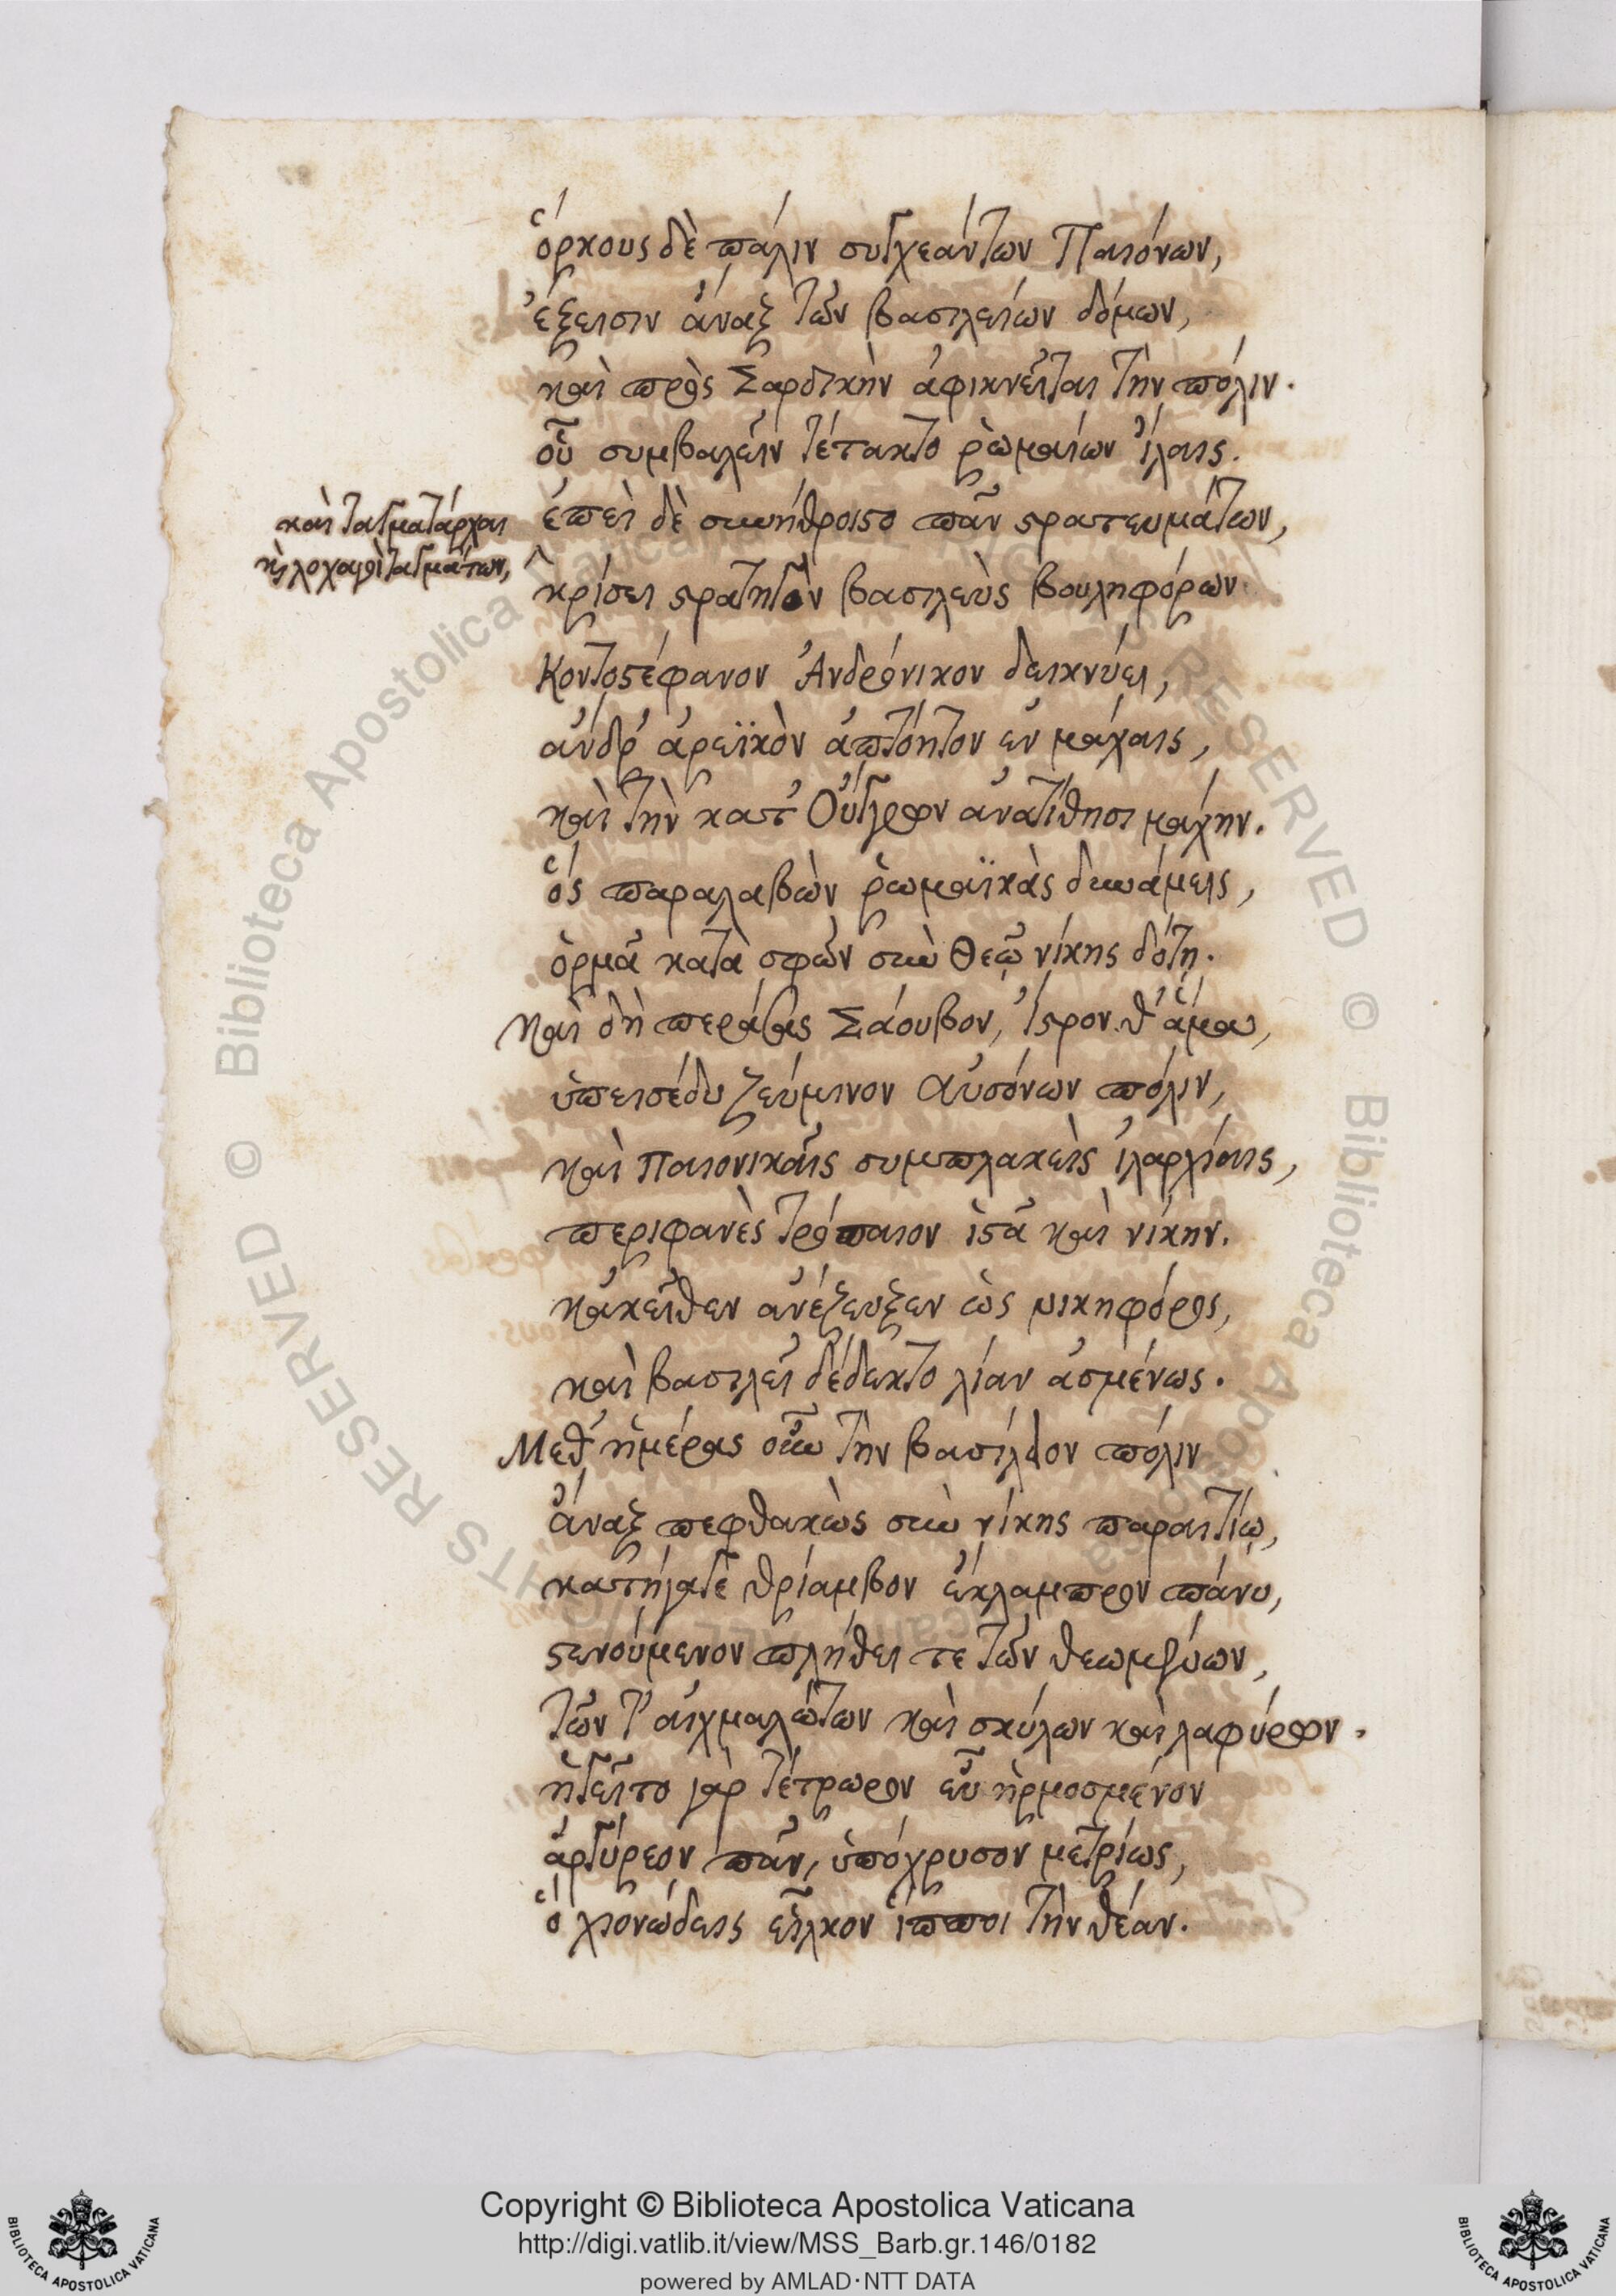 ὅρκους δὲ πάλιν συγχεάντων Παιόνων,
ἔξεισιν ἄναξ τῶν βασιλείων δόμων,
καὶ πρὸς Σαρδικὴν ἀφικνεῖται τὴν πόλιν.
οὗ συμβαλεῖν τέτακτο ῥωμαίων ἴλαις.
καὶ ταγματάρχαι
κὴ λοχαγοὶ ταγμάτων,
ἐπεὶ δὲ συνήθροιστο πᾶν στρατευμάτων,
κρίσει στρατηγὸν βασιλεὺς βουληφόρων
Κοντοστέφανον Ἀνδρόνικον δεικνύει,
ἄνδρ' ἀρεϊκὸν ἀπτόητον ἐν μάχαις,
καὶ τὴν κατ' Οὔγγρων ἀνατίθησι μάχην.
ὃς παραλαβὼν ῥωμαϊκὰς δυνάμεις,
ὁρμᾷ κατὰ σφῶν σὺν Θεῷ νίκης δότῃ.
Καὶ δὴ περάσας Σάουβον, Ἴστρον θ' ἅμα,
ὑπεισέδυ Ζεύμινον Αὐσόνων πόλιν,
καὶ Παιονικαῖς συμπλακεὶς ἰλαρχίαις,
περιφανὲς τρόπαιον ἱστᾷ καὶ νίκην.
κἀκεῖθεν ἀνέζευξεν ὡς νικηφόρος,
καὶ βασιλεῖ δέδεκτο λίαν ἀσμένως.
Μεθ' ἡμέρας οὖν τὴν βασίλειον πόλιν
ἄναξ πεφθακὼς σὺν νίκης παραιτίῳ,
κατήγαγε θρίαμβον ἔκλαμπρον πάνυ,
στενούμενον πλήθει τε τῶν θεωμένων,
τῶν τ' αἰχμαλώτων καὶ σκύλων καὶ λαφύρων.
ἡγεῖτο γὰρ τέτρωρον εὖ ἡρμοσμένον
ἀργύρεον πᾶν, ὑπόχρυσον μετρίως,
ὃ χιονώδεις εἷλκον ἵπποι τὴν θέαν.
Copyright © Biblioteca Apostolica Vaticana
http://digi.vatlib.it/view/MSS_Barb.gr.146/0182
powered by AMLAD·NTT DATA